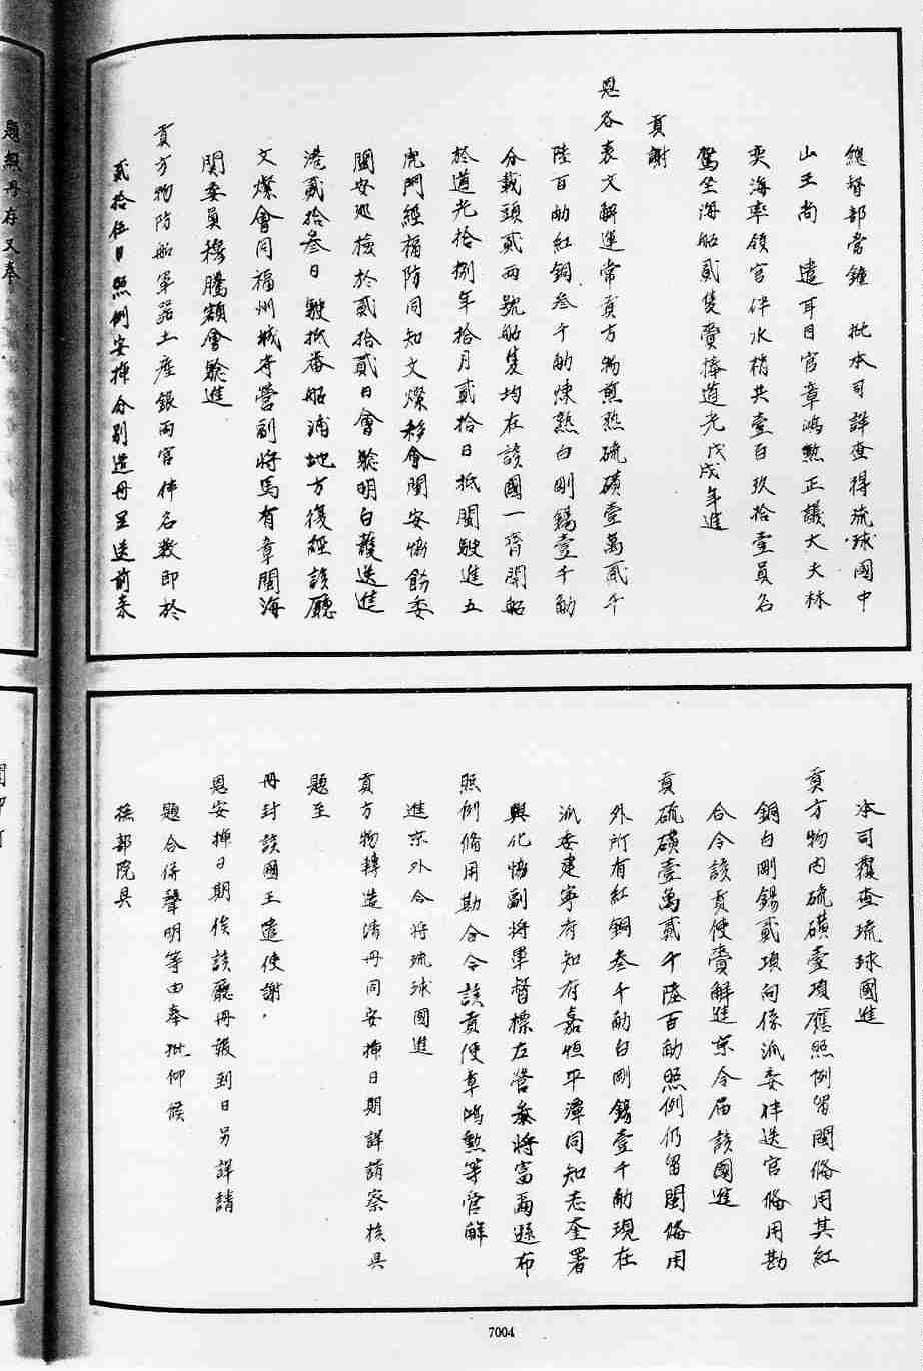 總督部堂鐘 批本司詳查得琉球國中
山王尚 遣耳目官章鴻勲正議大夫林
奕海率領官伴水梢共壹百玖拾壹員名
駕坐海船貳隻賫捧道光戊戌年進
貢謝
恩各表文解運常貢方物煎熟硫磺壹萬貳千
陸百觔紅銅叁千觔煉熟白剛錫壹千觔
分載頭貳兩號船隻均在該國一齊開船
於道光拾捌年拾月貳拾日抵閩駛進五
虎門經福防同知文燦移會閩安協飭委
閩安巡檢於貳拾貳日會驗明白護送進
港貳拾叁日駛抵番船浦地方復經該廳
文燦會同福州城守營副將馬有章閩海
関委員穆騰額會驗進
貢方物防船軍器土産銀両官伴名数即於
貳拾伍日照例安挿分別造冊呈送前来
本司覆查琉球國進
貢方物内硫磺壹項應照例留閩俻用其紅
銅白剛錫貳項向係派委伴送官俻用勘
合令該貢使賫解進京今届該國進
貢硫磺壹萬貳千陸百觔照例仍留閩俻用
外所有紅銅叁千觔白剛錫壹千觔現在
派委建寧府知府嘉恒平潭同知志奎署
興化協副將軍督標左營叅將富勒遜布
照例俻用勘合令該貢使章鴻勲等管解
進京外合將琉球國進
貢方物轉造清冊同安挿日期詳請察核具
題至
冊封該國王遣使謝
恩安挿日期俟該廳冊報到日另詳請
題合併聲明等由奉批仰候
撫部院具
題報冊存又奉
7004